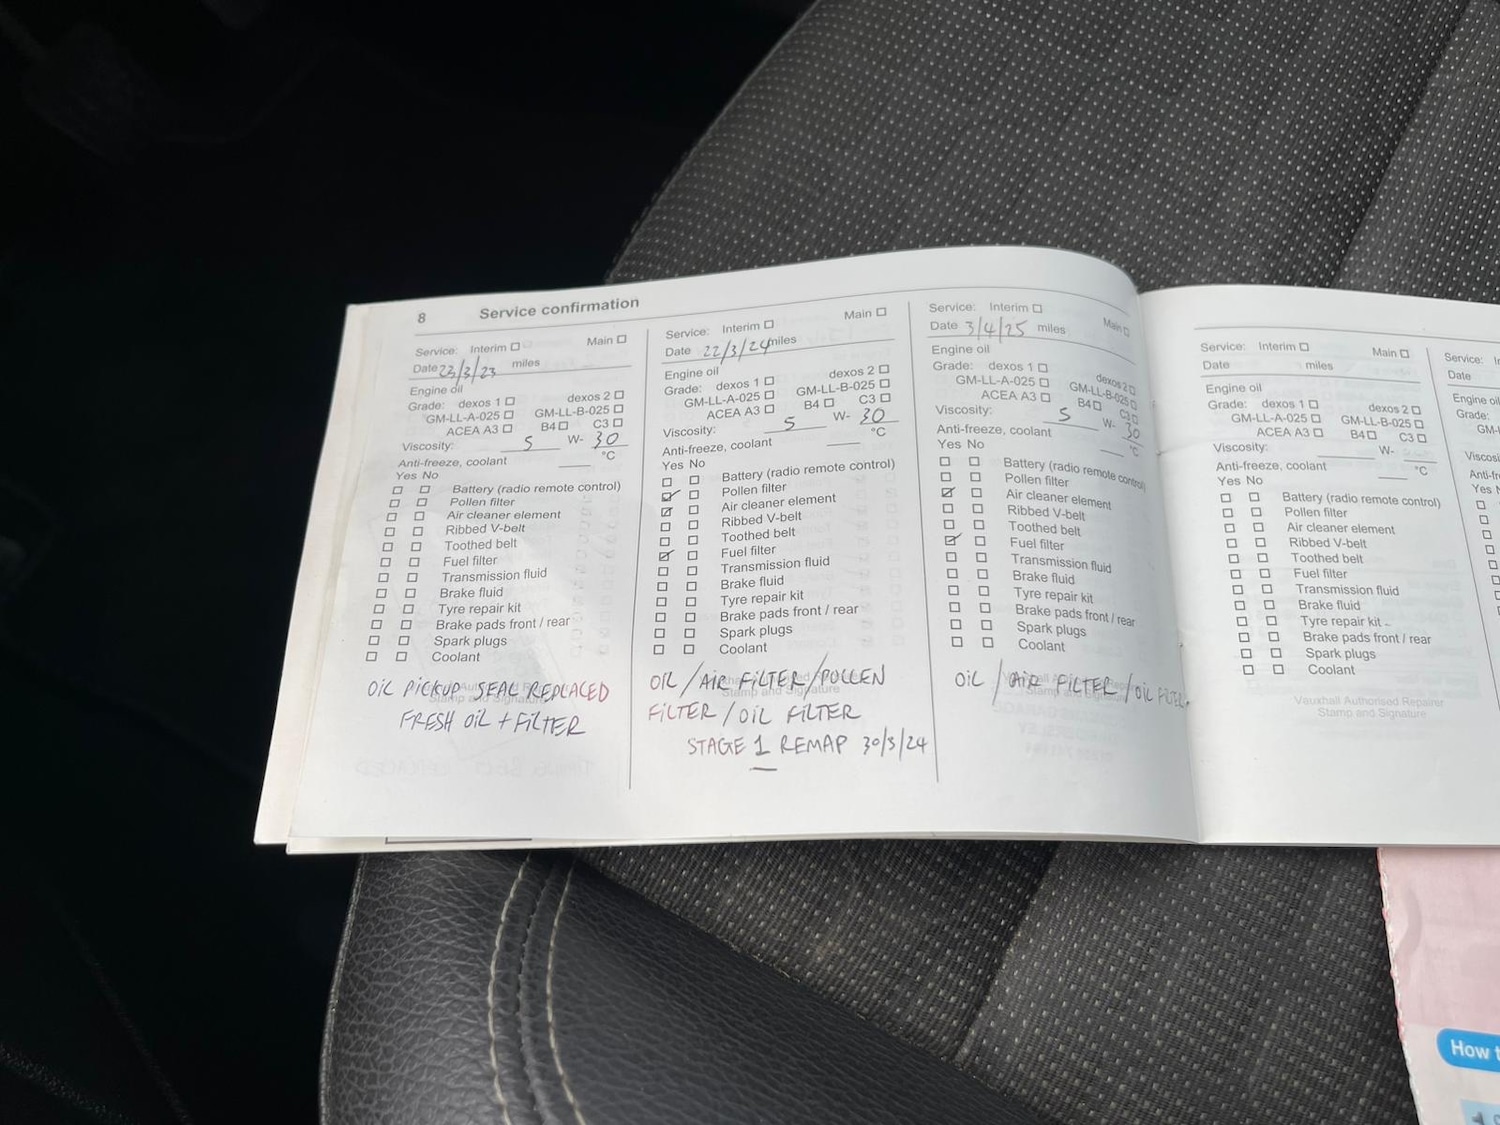 8 Service confirmation
Service: Interim ☐ Main ☐
Date 23/3/23 miles
Engine oil
Grade: dexos 1 ☐ dexos 2 ☐
GM-LL-A-025 ☐ GM-LL-B-025 ☐
ACEA A3 ☐ B4 ☐ C3 ☐
Viscosity: 5 W- 30
Anti-freeze, coolant °C
Yes No
Battery (radio remote control)
Pollen filter
Air cleaner element
Ribbed V-belt
Toothed belt
Fuel filter
Transmission fluid
Brake fluid
Tyre repair kit
Brake pads front / rear
Spark plugs
Coolant
Stamp and Signature
OIL PICKUP SEAL REPLACED
FRESH OIL + FILTER
Service: Interim ☐ Main ☐
Date 22/3/24 miles
Engine oil
Grade: dexos 1 ☐ dexos 2 ☐
GM-LL-A-025 ☐ GM-LL-B-025 ☐
ACEA A3 ☐ B4 ☐ C3 ☐
Viscosity: 5 W- 30
Anti-freeze, coolant °C
Yes No
Battery (radio remote control)
Pollen filter
Air cleaner element
Ribbed V-belt
Toothed belt
Fuel filter
Transmission fluid
Brake fluid
Tyre repair kit
Brake pads front / rear
Spark plugs
Coolant
Stamp and Signature
OIL / AIR FILTER / POLLEN
FILTER / OIL FILTER
STAGE 1 REMAP 30/3/24
Service: Interim ☐ Main ☐
Date 3/4/25 miles
Engine oil
Grade: dexos 1 ☐ dexos 2 ☐
GM-LL-A-025 ☐ GM-LL-B-025 ☐
ACEA A3 ☐ B4 ☐ C3 ☐
Viscosity: 5 W- 30
Anti-freeze, coolant °C
Yes No
Battery (radio remote control)
Pollen filter
Air cleaner element
Ribbed V-belt
Toothed belt
Fuel filter
Transmission fluid
Brake fluid
Tyre repair kit
Brake pads front / rear
Spark plugs
Coolant
Stamp and Signature
OIL / AIR FILTER / OIL FILTER
Service: Interim ☐ Main ☐
Date miles
Engine oil
Grade: dexos 1 ☐ dexos 2 ☐
GM-LL-A-025 ☐ GM-LL-B-025 ☐
ACEA A3 ☐ B4 ☐ C3 ☐
Viscosity: W-
Anti-freeze, coolant °C
Yes No
Battery (radio remote control)
Pollen filter
Air cleaner element
Ribbed V-belt
Toothed belt
Fuel filter
Transmission fluid
Brake fluid
Tyre repair kit
Brake pads front / rear
Spark plugs
Coolant
Vauxhall Authorised Repairer
Stamp and Signature
Service:
Date
Engine
Grade:
How